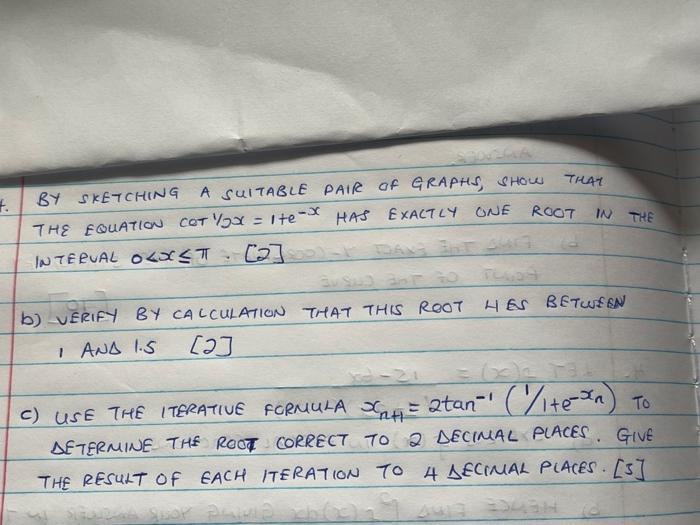 BY SKETCHING A SUITABLE PAIR OF GRAPHS, SHOW THAT
THE EQUATION COT 1/2x = 1+e^-x HAS EXACTLY ONE ROOT IN THE
INTERVAL 0<x≤π. [2]
b) VERIFY BY CALCULATION THAT THIS ROOT LIES BETWEEN
1 AND 1.5 [2]
c) USE THE ITERATIVE FORMULA x_n+1 = 2tan^-1 (1/1+e^-x_n) TO
DETERMINE THE ROOT CORRECT TO 2 DECIMAL PLACES. GIVE
THE RESULT OF EACH ITERATION TO 4 DECIMAL PLACES. [3]